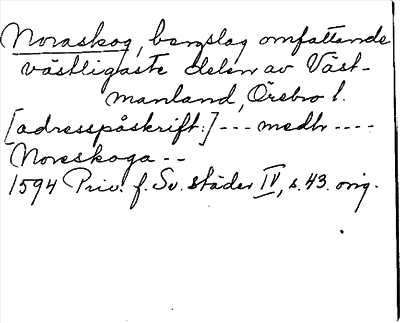 Noraskog, bergslag omfattande
västligaste delen av Väst-
manland, Örebro l.
[adresspåskrift:] --- medh ----
Noreskoga --
1594 Priv. f. Sv. städer IV, s. 43. orig.